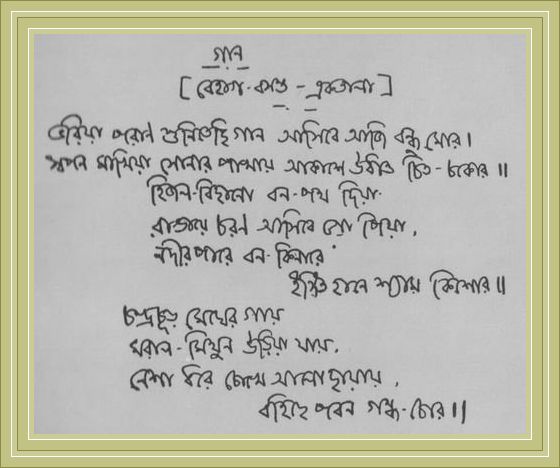 গান
[বেহাগ-বসন্ত - একতালা]
ভরিয়া পরাণ শুনিতেছি গান আসিবে আজি বন্ধু মোর।
স্বপন মাখিয়া সোনার পাখায় আকাশে উধাও চিত-চকোর॥
হিজল-বিছানো বন-পথ দিয়া
রাঙায়ে চরণ আসিবে গো পিয়া,
নদীর পারে বন-কিনারে
ইঙ্গিত হানে শ্যাম কিশোর॥
চন্দ্রচূড় মেঘের গায়
মরাল-মিথুন উড়িয়া যায়,
নেশা ধরে চোখে আলোছায়ায়,
বহিছে পবন গন্ধ-চোর॥